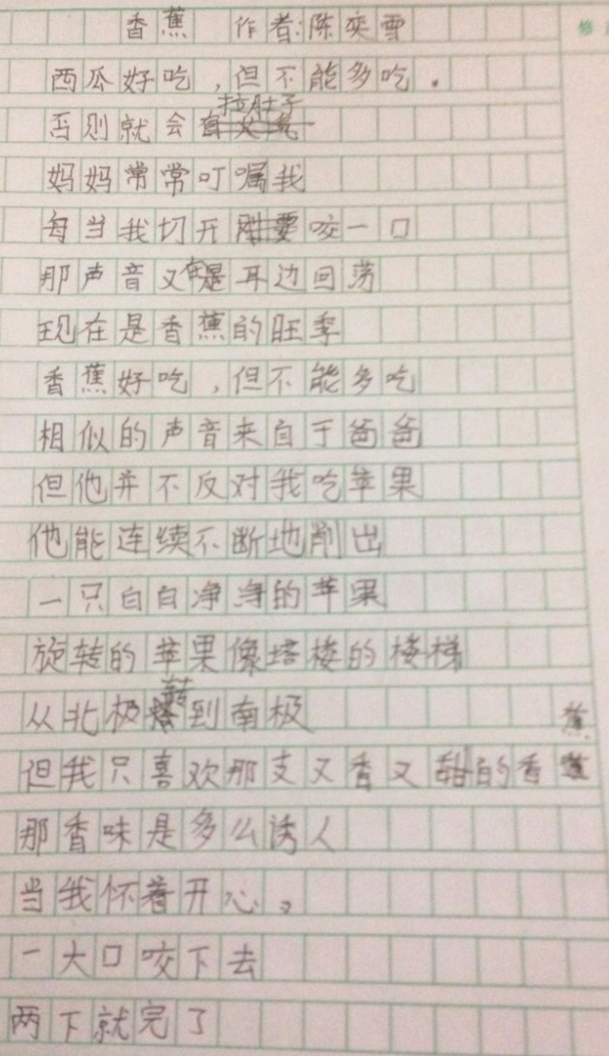 香蕉 作者:陈奕雪
修
西瓜好吃,但不能多吃.
否则就会拉肚子
妈妈常常叮嘱我
每当我切开刚要咬一口
那声音又在耳边回荡
现在是香蕉的旺季
香蕉好吃,但不能多吃
相似的声音来自于爸爸
但他并不反对我吃苹果
他能连续不断地削出
一只白白净净的苹果
旋转的苹果像塔楼的楼梯
从北极转到南极
但我只喜欢那支又香又甜的香蕉
那香味是多么诱人
当我怀着开心。
一大口咬下去
两下就完了